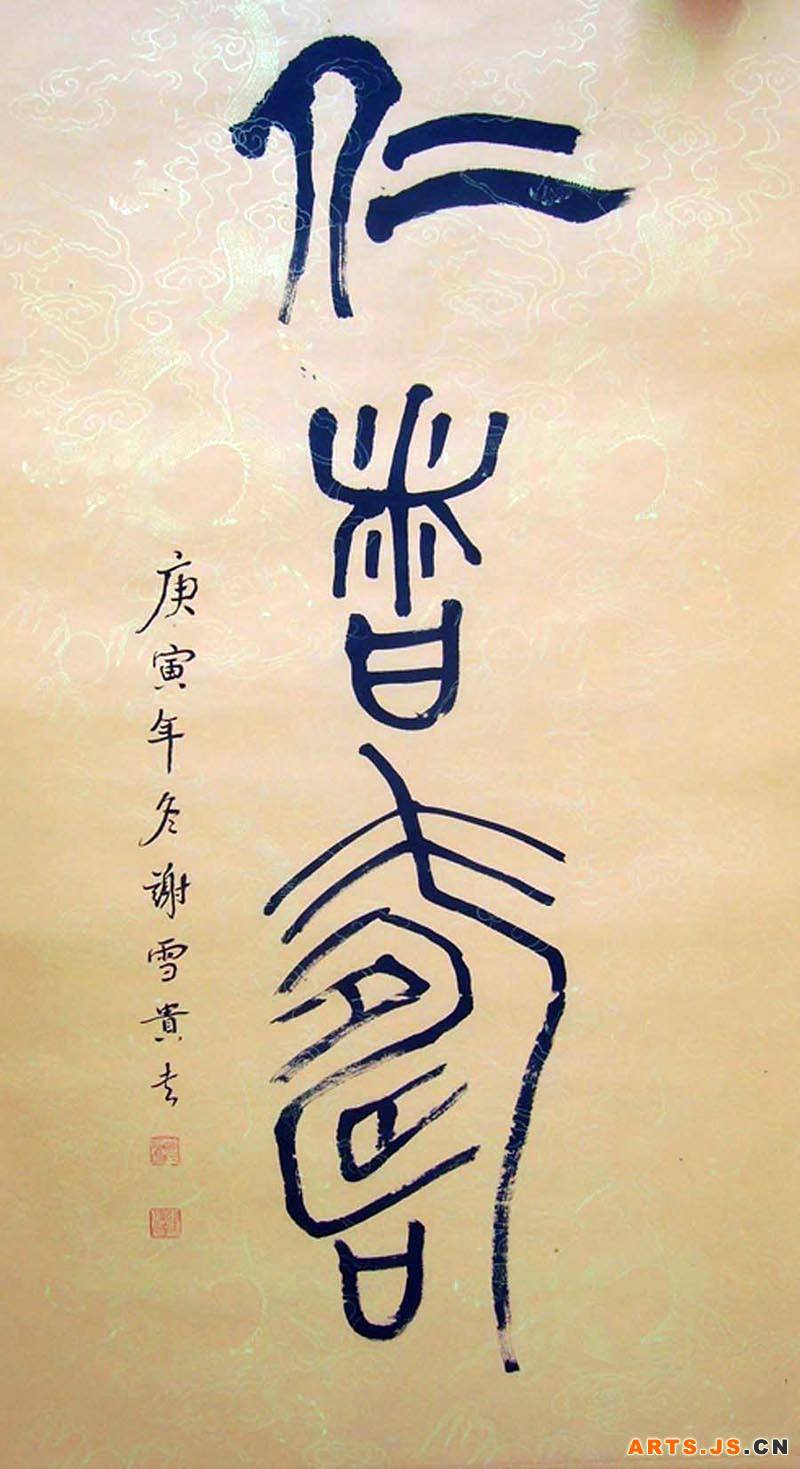 仁者壽
庚寅年冬謝雪貴書
ARTS.JS.CN